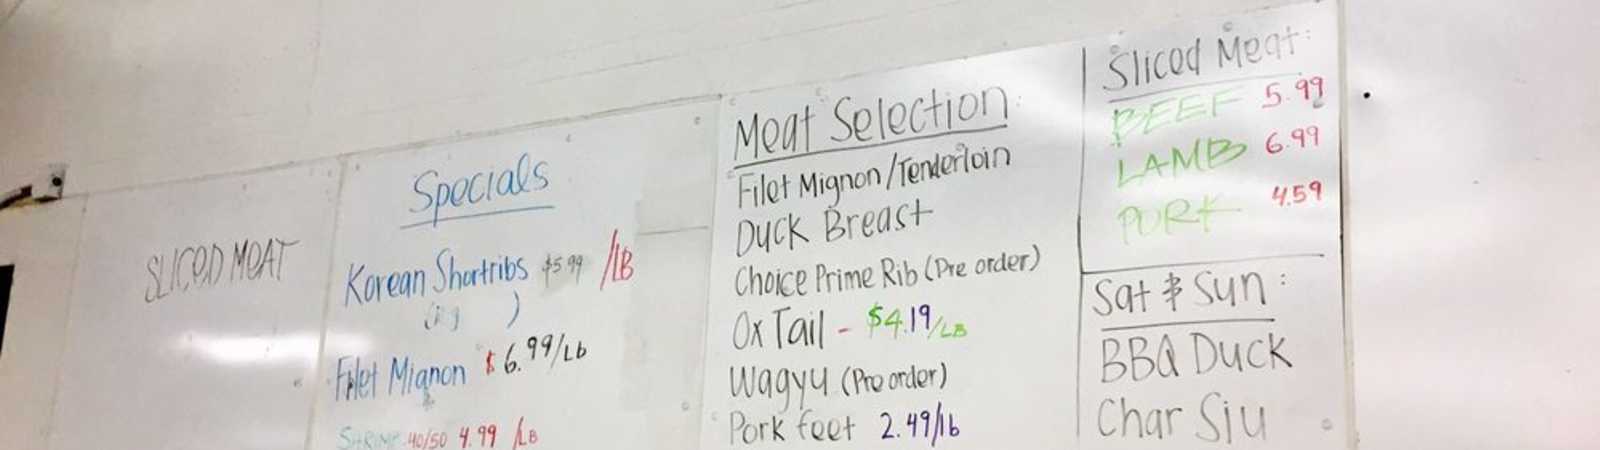 SLICED MEAT
Specials
Korean Shortribs $5.99 /LB
Filet Mignon $6.99/Lb
SHRIMP 40/50 4.99 /LB
Meat Selection:
Filet Mignon/Tenderloin
Duck Breast
Choice Prime Rib (Pre order)
Ox Tail - $4.19/LB
Wagyu (Pre order)
Pork feet 2.49/lb
Sliced Meat:
BEEF 5.99
LAMB 6.99
PORK 4.59
Sat & Sun:
BBQ Duck
Char Siu